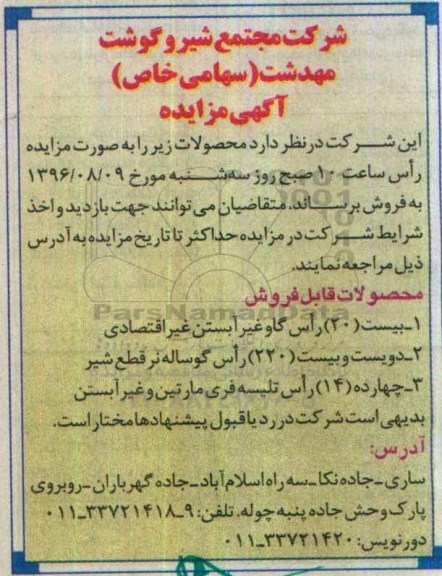 شرکت مجتمع شیر و گوشت
مهدشت (سهامی خاص)
آگهی مزایده
این شرکت در نظر دارد محصولات زیر را به صورت مزایده
رأس ساعت ۱۰ صبح روز سه‌شنبه مورخ ۱۳۹۶/۰۸/۰۹
به فروش برساند. متقاضیان می توانند جهت بازدید و اخذ
شرایط شرکت در مزایده حداکثر تا تاریخ مزایده به آدرس
ذیل مراجعه نمایند.
محصولات قابل فروش
ParsNamadData
۱ـ بیست (۲۰) رأس گاو غیر آبستن غیر اقتصادی
۲ـ دویست و بیست (۲۲۰) رأس گوساله نر قطع شیر
۳ـ چهارده (۱۴) رأس تلیسه فری مارتین و غیر آبستن
بدیهی است شرکت در رد یا قبول پیشنهادها مختار است.
آدرس:
ساری ـ جاده نکا ـ سه راه اسلام آباد ـ جاده گهرباران ـ روبروی
پارک وحش جاده پنبه چوله. تلفن: ۹ـ۳۳۷۲۱۴۱۸ـ۰۱۱
دورنویس: ۳۳۷۲۱۴۲۰ـ۰۱۱